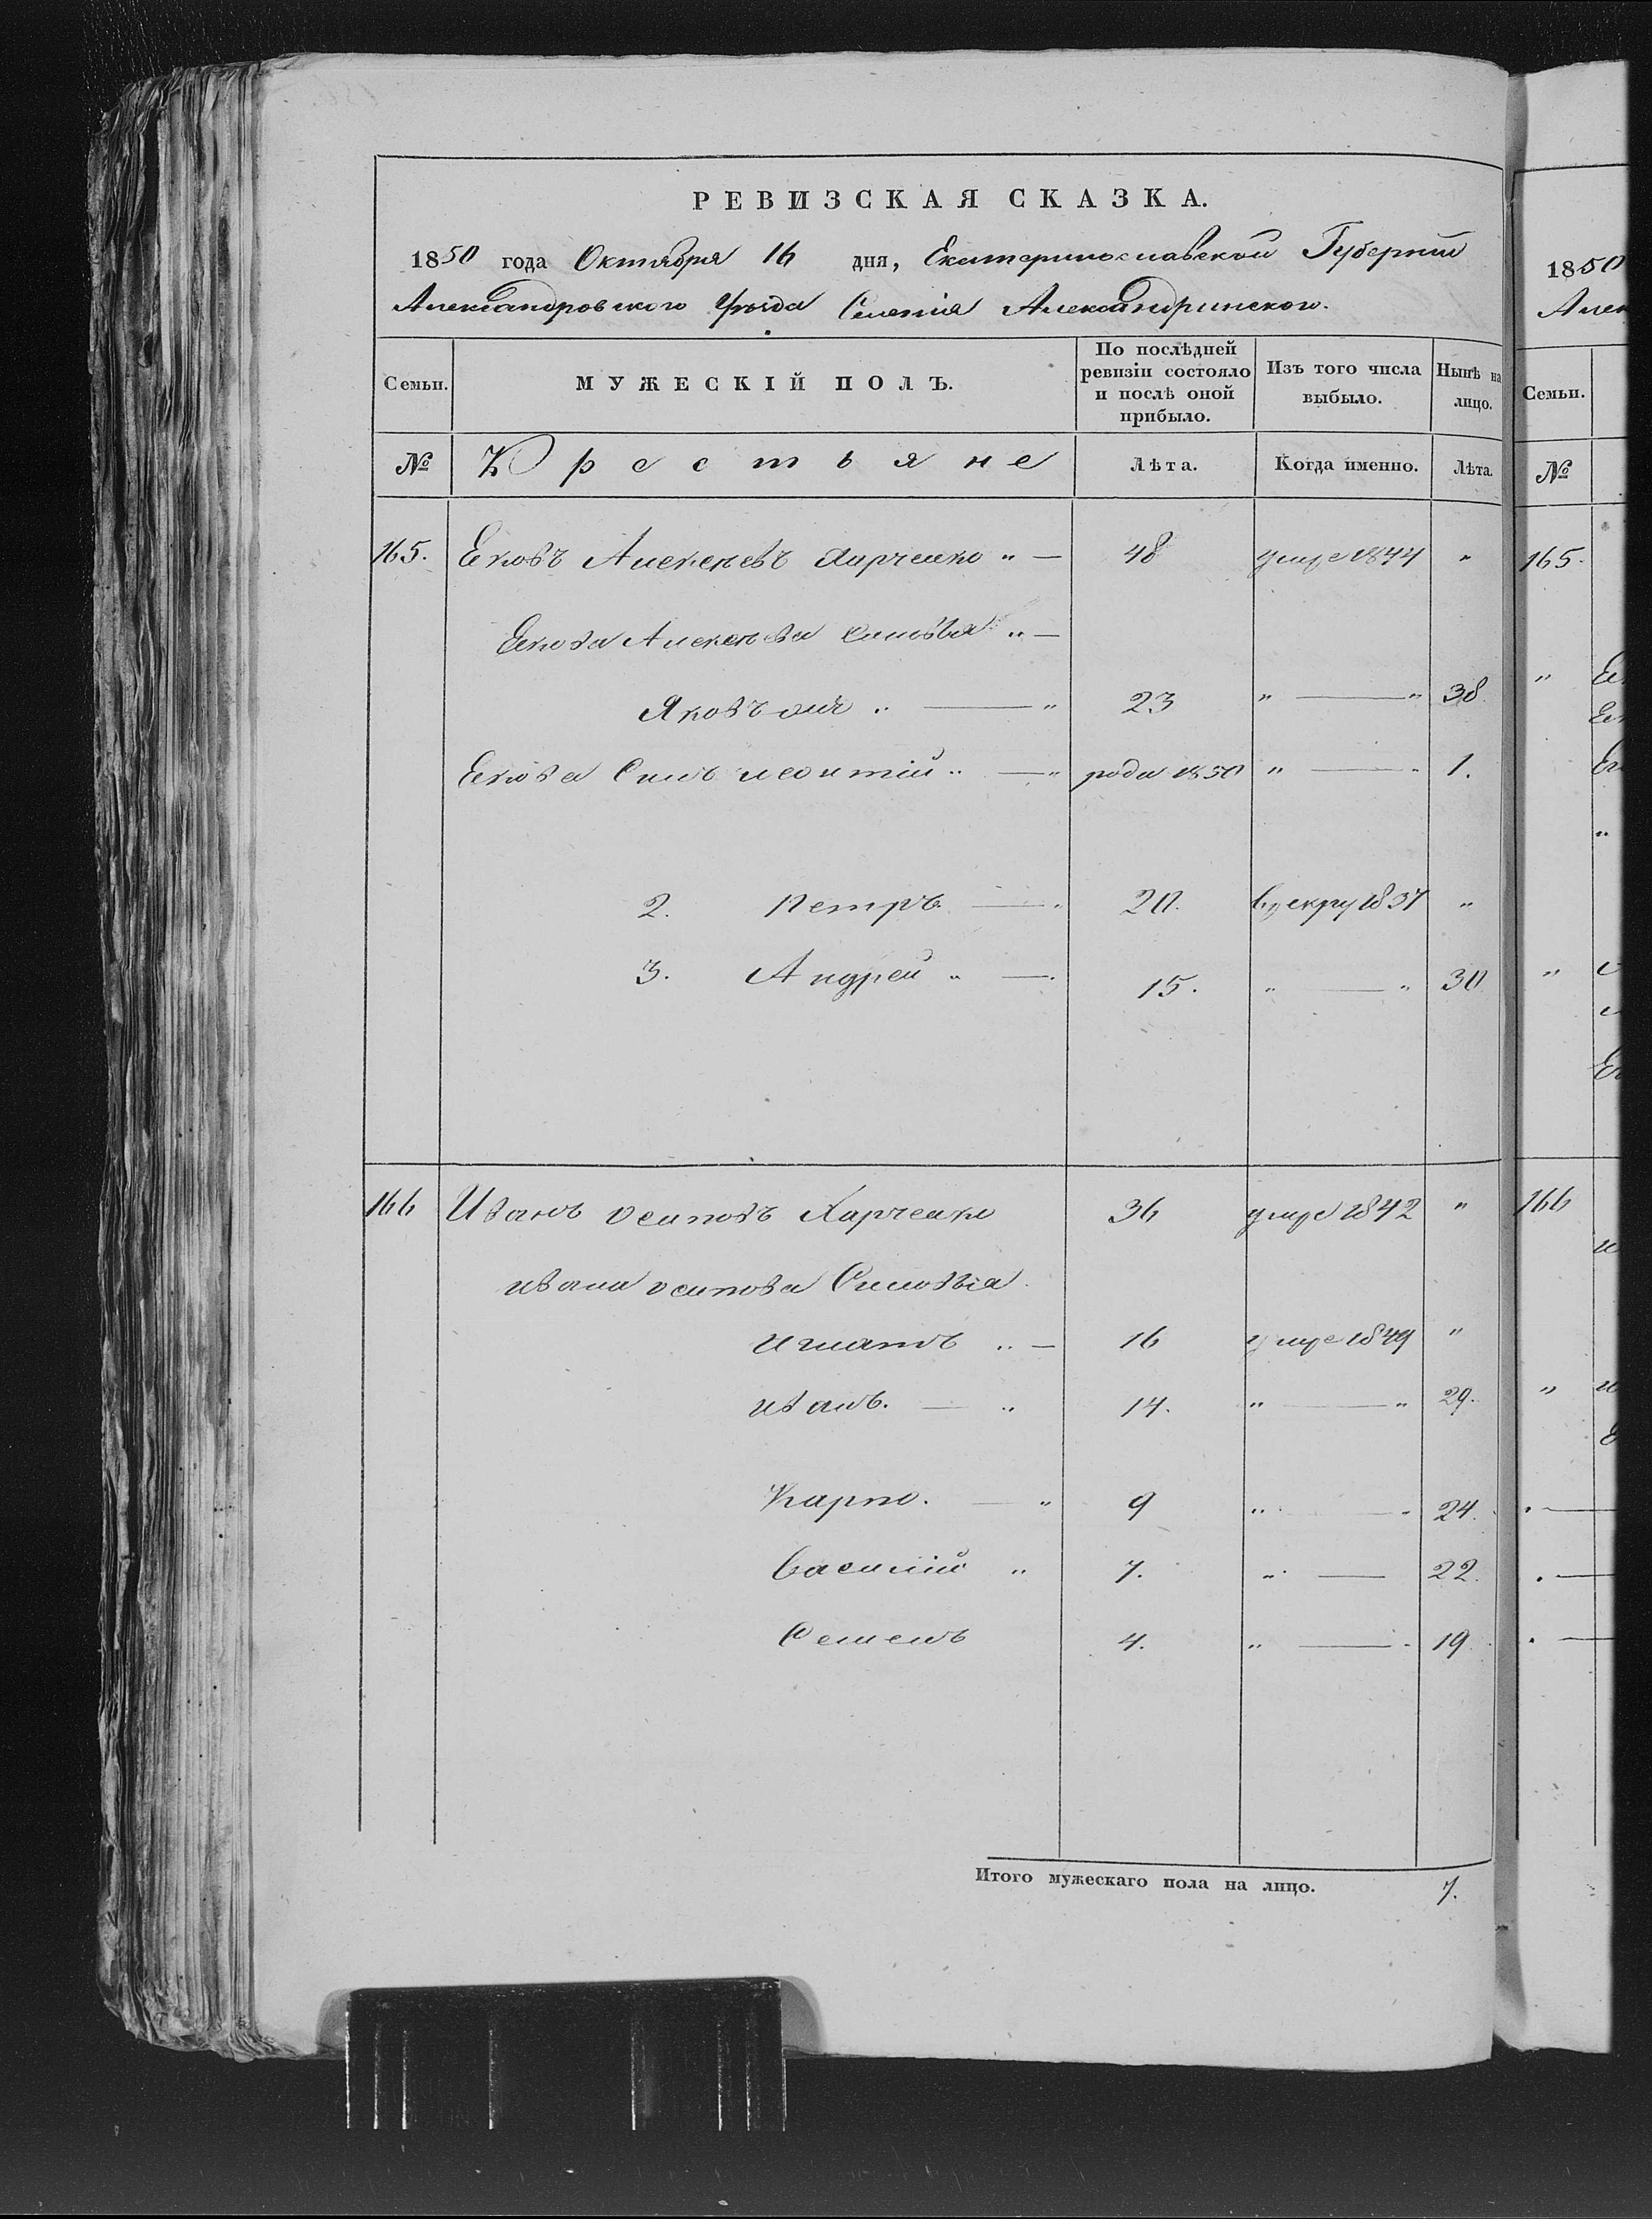 РЕВИЗСКАЯ СКАЗКА.
1850 года Октября 16 дня, Екатеринославской Губернии
Александровского Уѣзда Селенія Александринского.
Семьи. МУЖЕСКІЙ ПОЛЪ. По послѣдней ревизіи состояло и послѣ оной прибыло. Изъ того числа выбыло. Нынѣ на лицо.
№ Крестьяне Лѣта. Когда именно. Лѣта.
165. Яковъ Алексѣевъ Харченко " — 48 умре 1844 "
Якова Алексѣева Сыновья " —
Яковъ " — " 23 " — " 38.
Сынъ Леонтій " — " рода 1850 " — " 1.
2. Петръ — " 20. 1837 "
3. Андрей " — 15. " — " 30
166 Иванъ Осиповъ Харченко 36 умре 1842 "
Ивана Осипова Сыновья
Игнатъ " — 16 умре 1849 "
Иванъ. — " 14. " — " 29.
Карпо. — " 9 " — " 24.
Василій " 7. " — 22.
Семенъ 4. " — " 19
Итого мужескаго пола на лицо. 7.
1850
Алек
Семьи.
№
165.
166